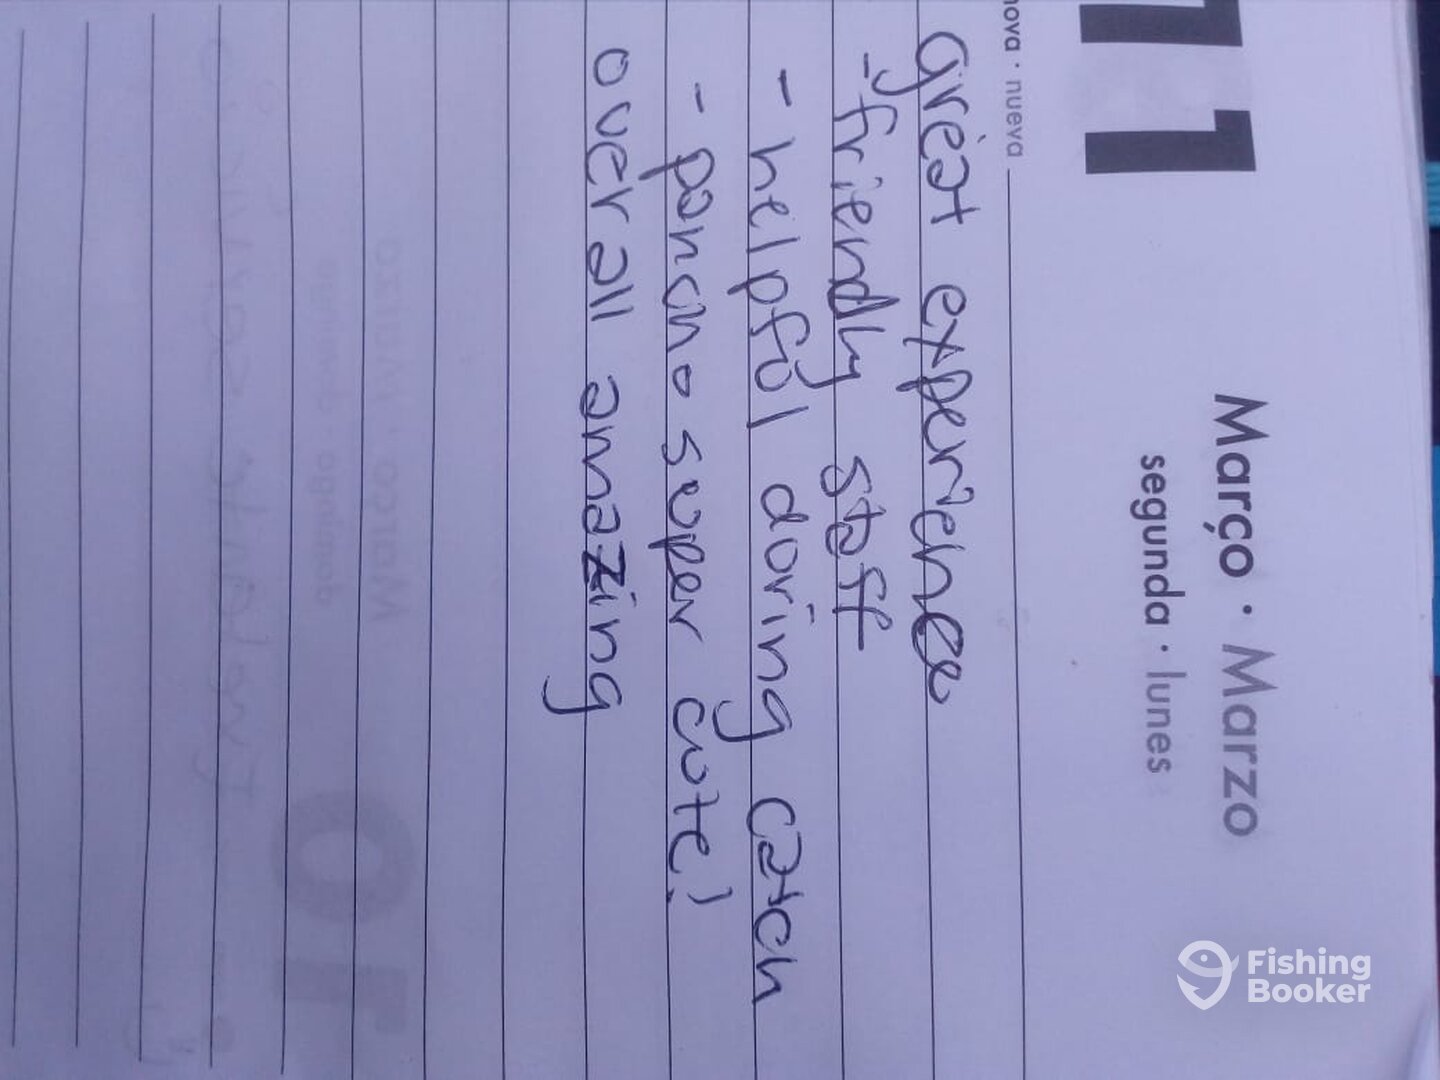 11
Março · Marzo
segunda · lunes
nova · nueva
great experience
- friendly staff
- helpful during catch
- ponono super cute!
overall amazing
Fishing
Booker